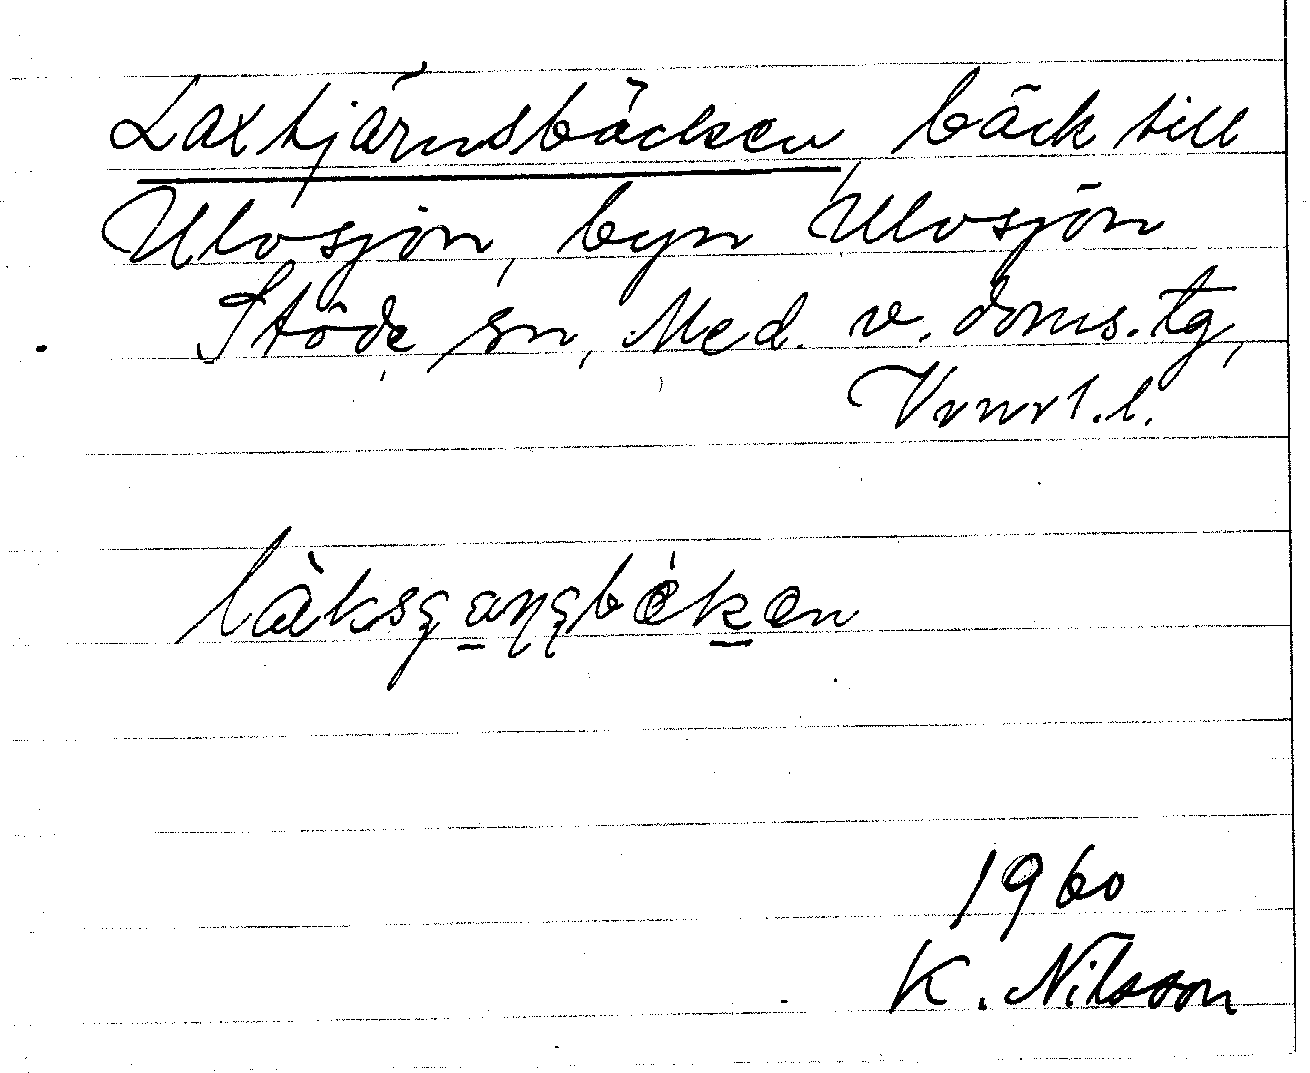 Laxtjärnsbäcken, bäck till
Ulvsjön, byn Ulvsjön
Stöde sn, Med. v. doms. tg,
Vrnrl. l.
1960
K. Nilsson